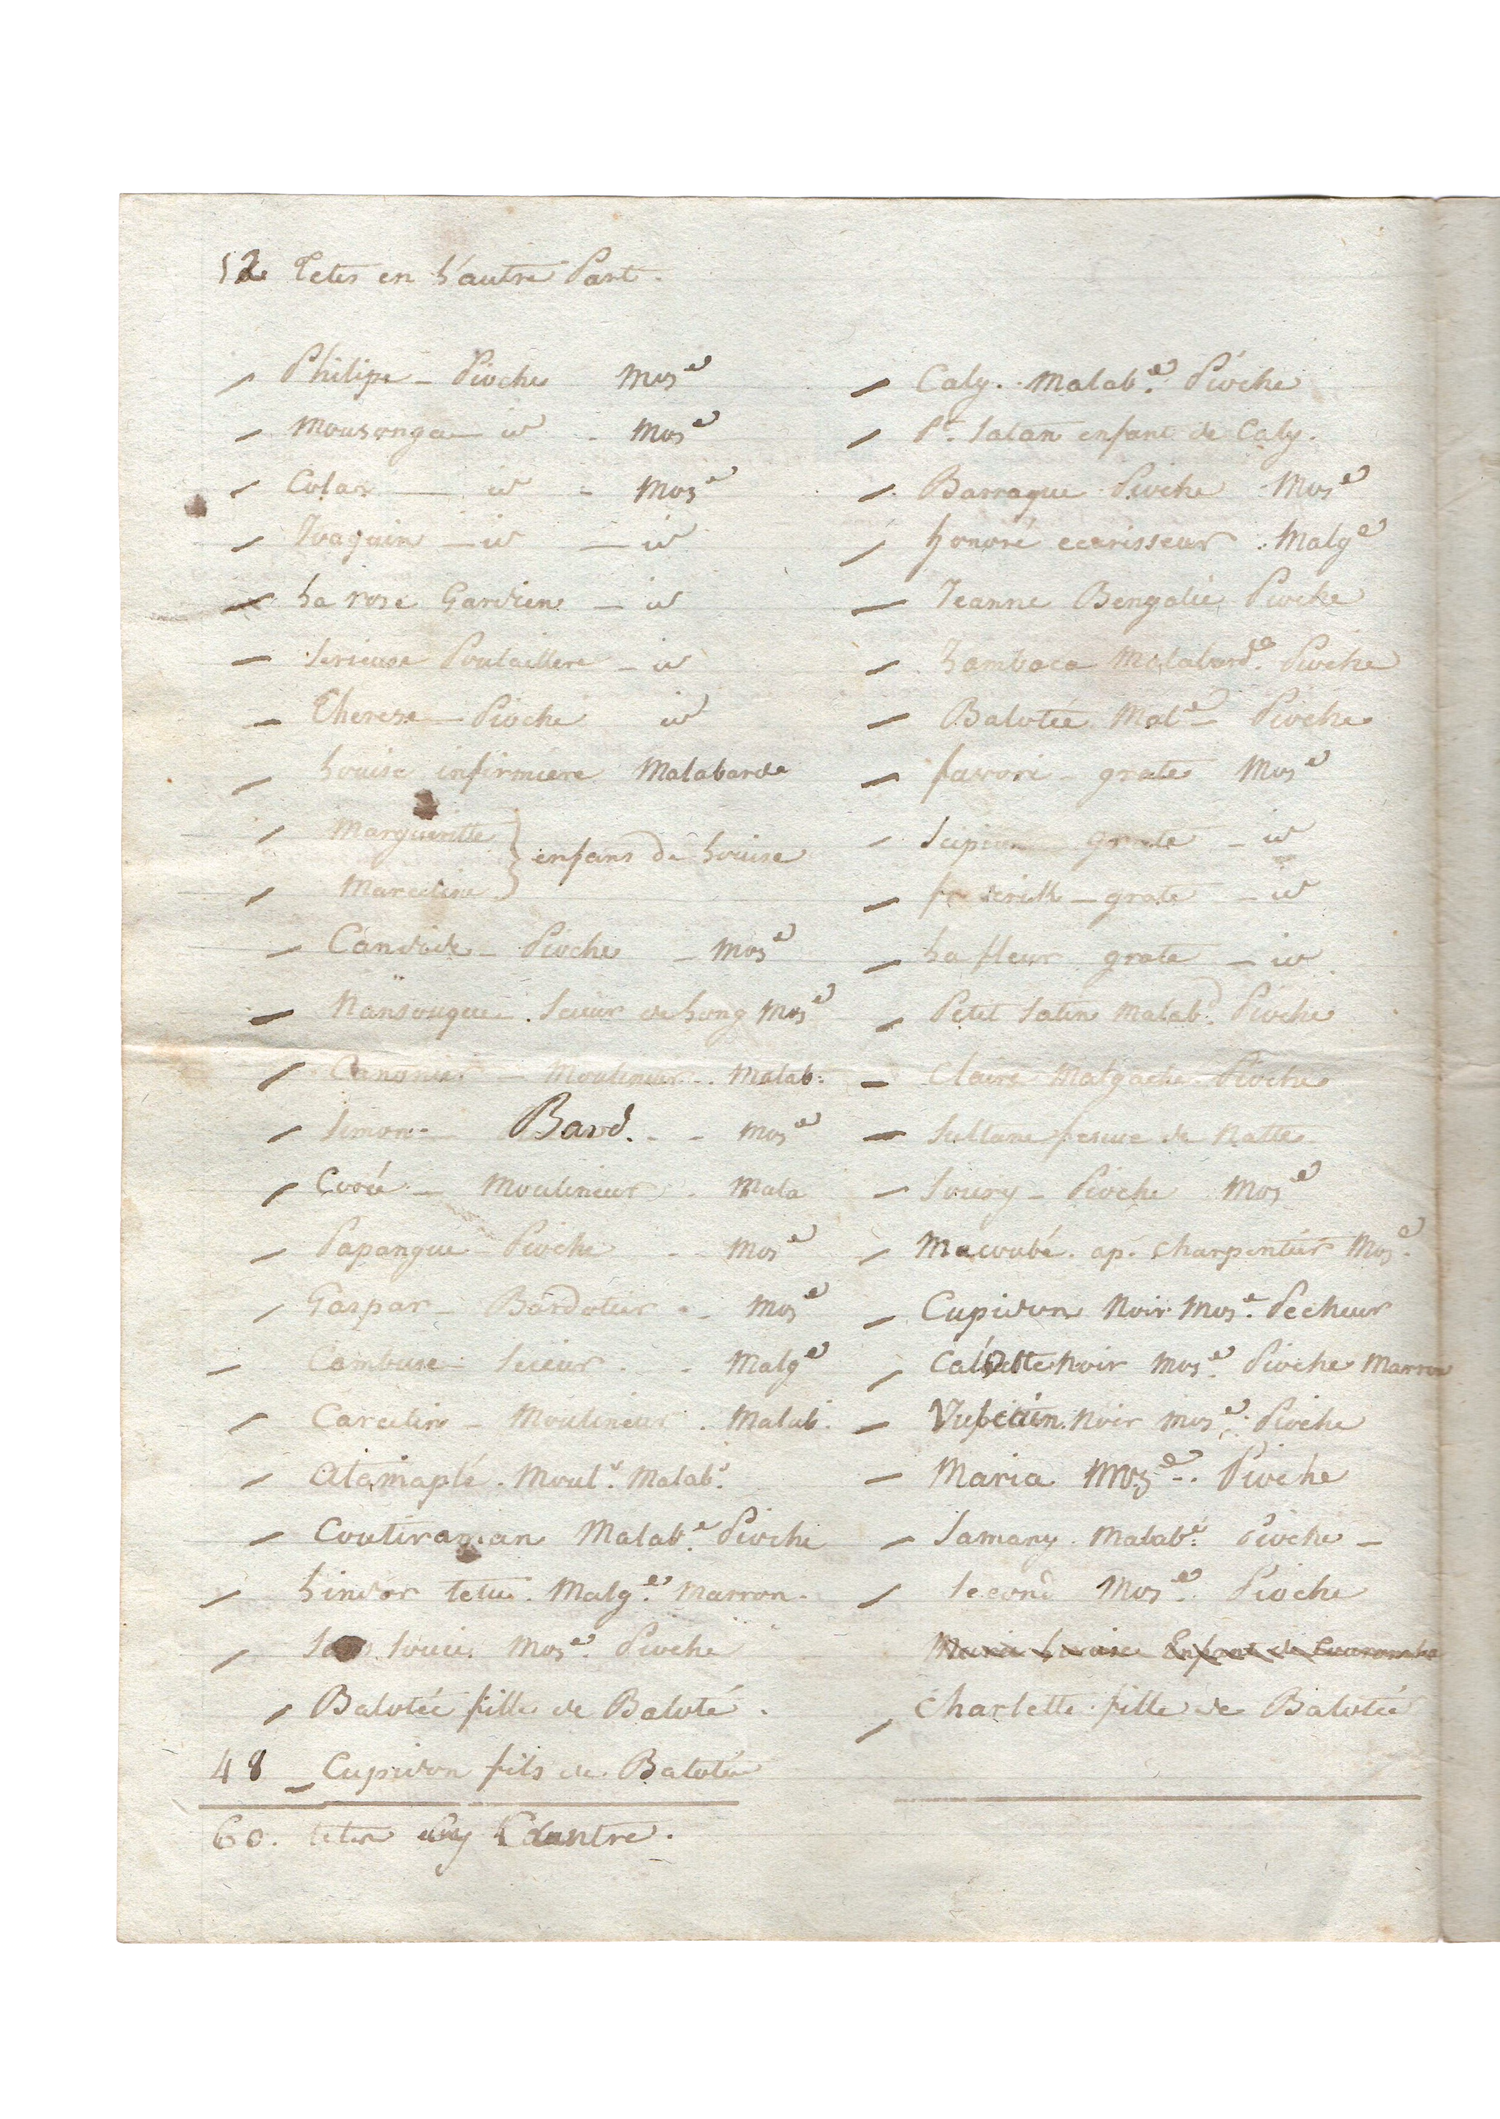 12 Tetes en L'autre Part.
Philipe - Pioche Mose
Mousonga - id - Mose
Colas - id - Moze
Joaquin - id - id
La rose Gardien - id
Serieuse Poulaillere - id
Therese - Pioche id
Louise infirmiere Malabarde
Margueritte
enfans de Louise
Marceline
Candide - Pioche - Mose
Nansouque. Scieur de Long Mose
Canonier - Moulineur. Malab:
Simon - Bard. - - Mose
Coroü - Moulineur - Mala
Papangue - Pioche - - Mose
Gaspar - Bardottier - - Mose
Cambuse - Scieur. - Malge
Carcelin - Moulineur. Malab.
Atamaplé. Moulr. Malabr.
Coutiraman Malabe. Pioche
Lindor tetu. Malge. Marron.
Sans Souci. Mose. Pioche
Balotée fille de Baloté.
48 Cupidon fils de Balotée
60. tetes Cy Contre.
Caly. Malabe. Pioche
Pt. Satan enfant de Caly.
Barraque Pioche Mose
honoré ecarisseur. Malge
Jeanne Bengalie Pioche
Zambaca Malabarde. Pioche
Balotée Male - Pioche
favori - grate Mose
Scipion grate - id
grate - id
La fleur grate - id
Petit Satin Malab. Pioche
Claire Malgache Pioche
Sultane de Natte
Soury - Pioche Mose
Macoubé. ap. charpentier Mose.
Cupidon Noir Mose. Pecheur
Noir Mose. Pioche Marron
Vulcain. Noir Mose. Pioche
Maria Moze -. Pioche
Samany. Malabe. Pioche -
Second Mose. Pioche
Maria Louise Enfant de
Charlette fille de Balotée